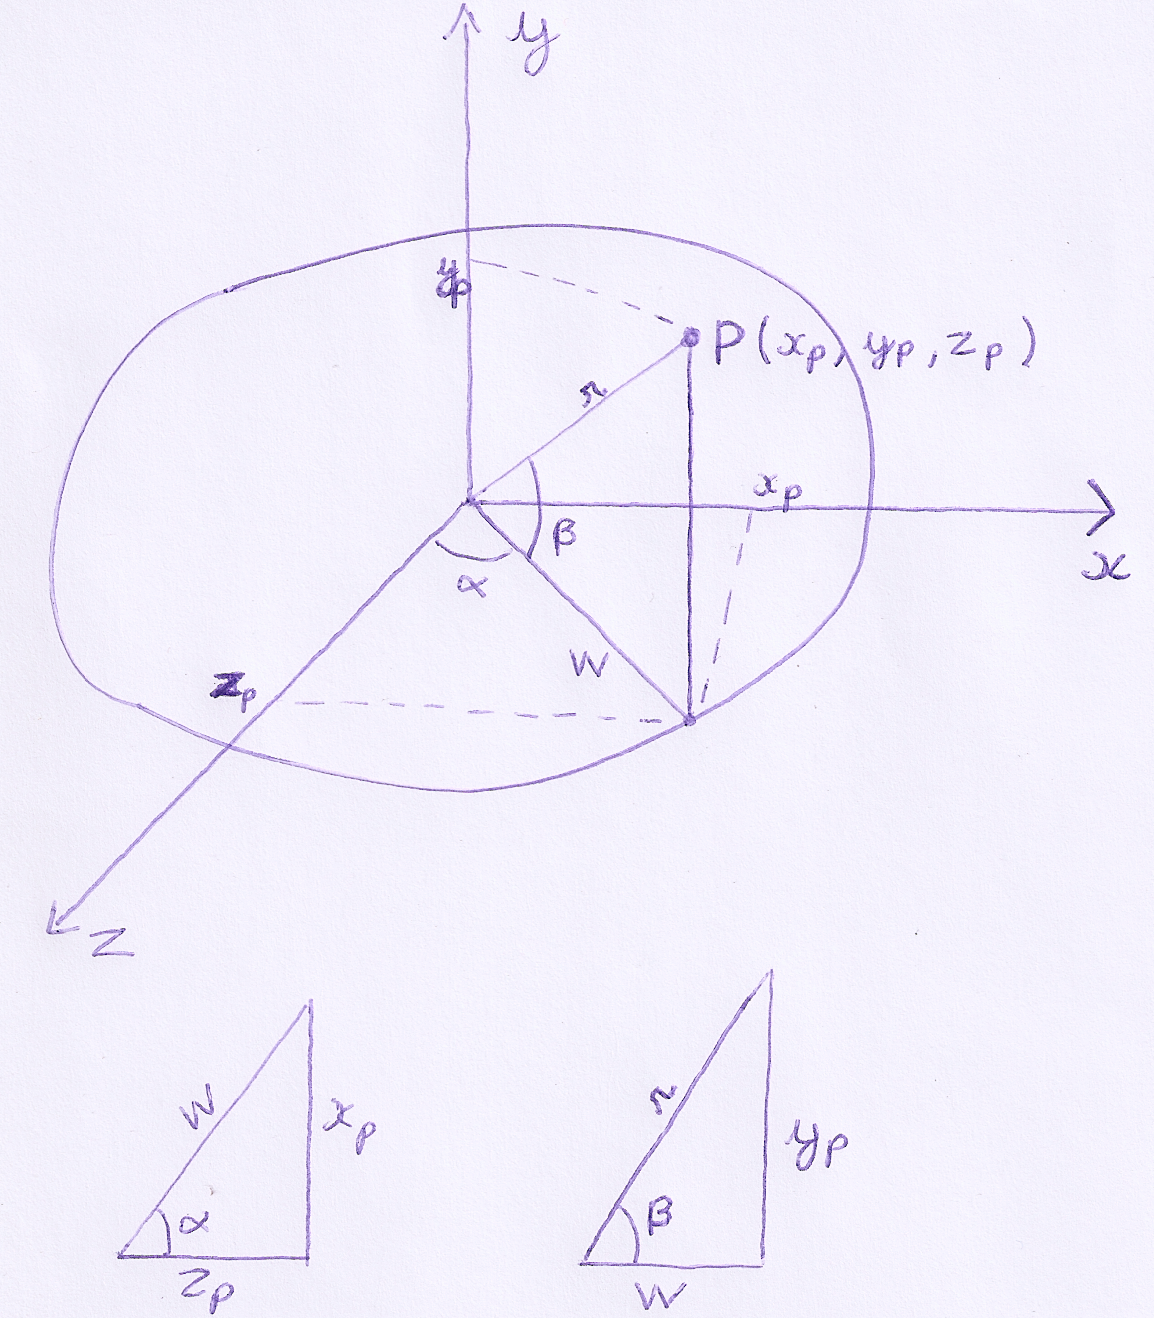 y
yₚ
P(xₚ, yₚ, zₚ)
r
xₚ
β
x
α
W
zₚ
z
W
xₚ
α
zₚ
r
yₚ
β
W